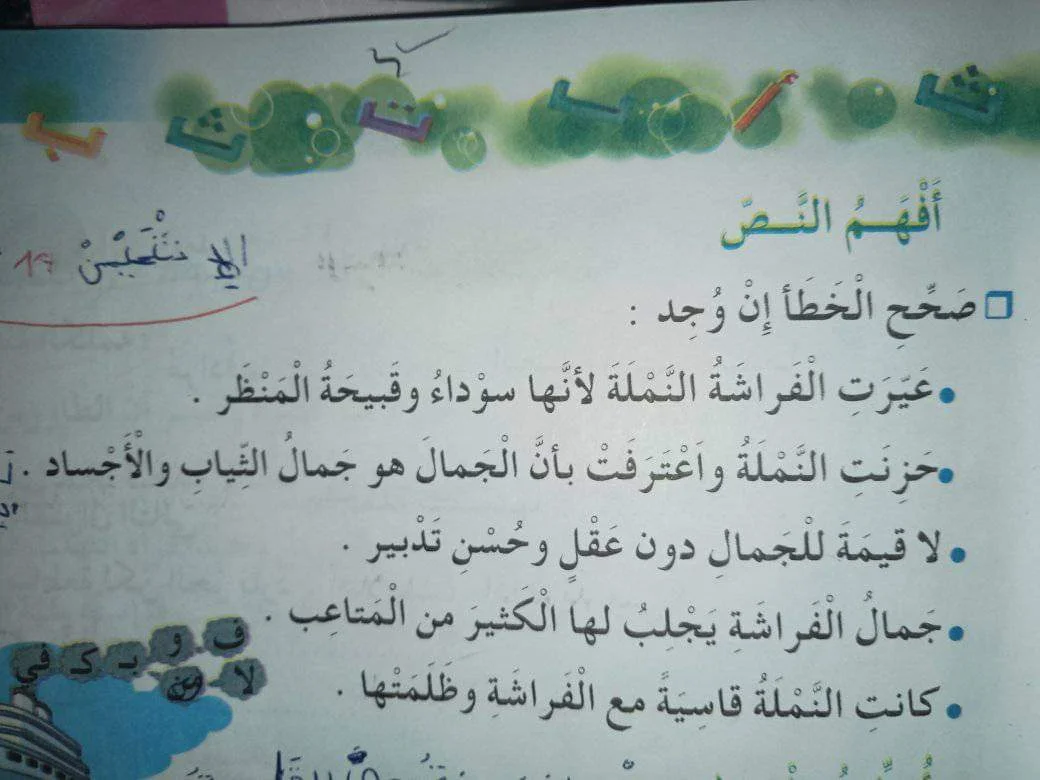 ب ث ت ب ث
أَفْهَمُ النَّصّ
19
❐ صَحِّحِ الْخَطَأ إِنْ وُجِد :
• عَيّرَتِ الْفَراشَةُ النَّمْلَةَ لأنَّها سوْداءُ وقَبيحَةُ الْمَنْظَر .
• حَزِنَتِ النَّمْلَةُ واَعْتَرَفَتْ بأنَّ الْجَمالَ هو جَمالُ الثِّيابِ والْأَجْساد .
• لا قيمَةَ للْجَمالِ دون عَقْلٍ وحُسْنِ تَدْبير .
• جَمالُ الْفَراشَةِ يَجْلِبُ لها الْكَثيرَ من الْمَتاعِب .
• كانتِ النَّمْلَةُ قاسِيَةً مع الْفَراشَةِ وظَلَمَتْها .
ف و بـ كـ في
لا من